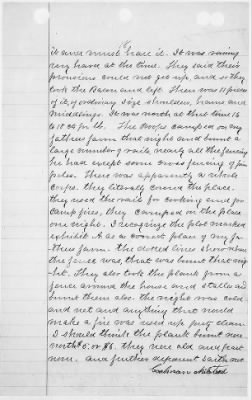 to area must have it. It was raining
very hard at the time. They said their
provisions could not get up, and so they
took the Bacon and left. There was 11 pieces
of it, of ordinary size shoulders, hams and
middlings. It was worth at that time 16
to 18 cts per lb. The troops camped on my
fathers farm that night and burnt a
large number of rails, nearly all the fencing
he had except some cross fencing of pine
poles. There was apparently a whole
corps. they literally covered the place.
they used the rails for cooking and for
Camp fires, they camped on the place
one night. I recognize the plat marked
exhibit A as a correct plat of my fa
thers farm. the dotted lines show where
the fence was, that was burnt that nig
ht. They also took the planks from a
fence around the house and stables and
burnt them also. the night was cold
and wet and anything that would
make a fire was used up pretty clean.
I should think the plank burnt were
worth $5. or $6. they were old and
worn. and further deponent saith not